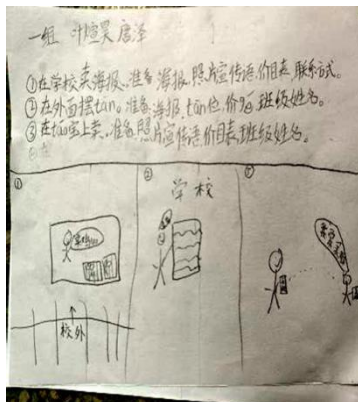 一组 叶煊昊 唐泽
①在学校卖海报、准备海报、照片宣传语、价目表、联系方式。
②在外面摆tān。准备海报、tān位、价 班级姓名。
③在táo宝上卖、准备照片宣传语、价目表、班级姓名。
① ②
学校
校外